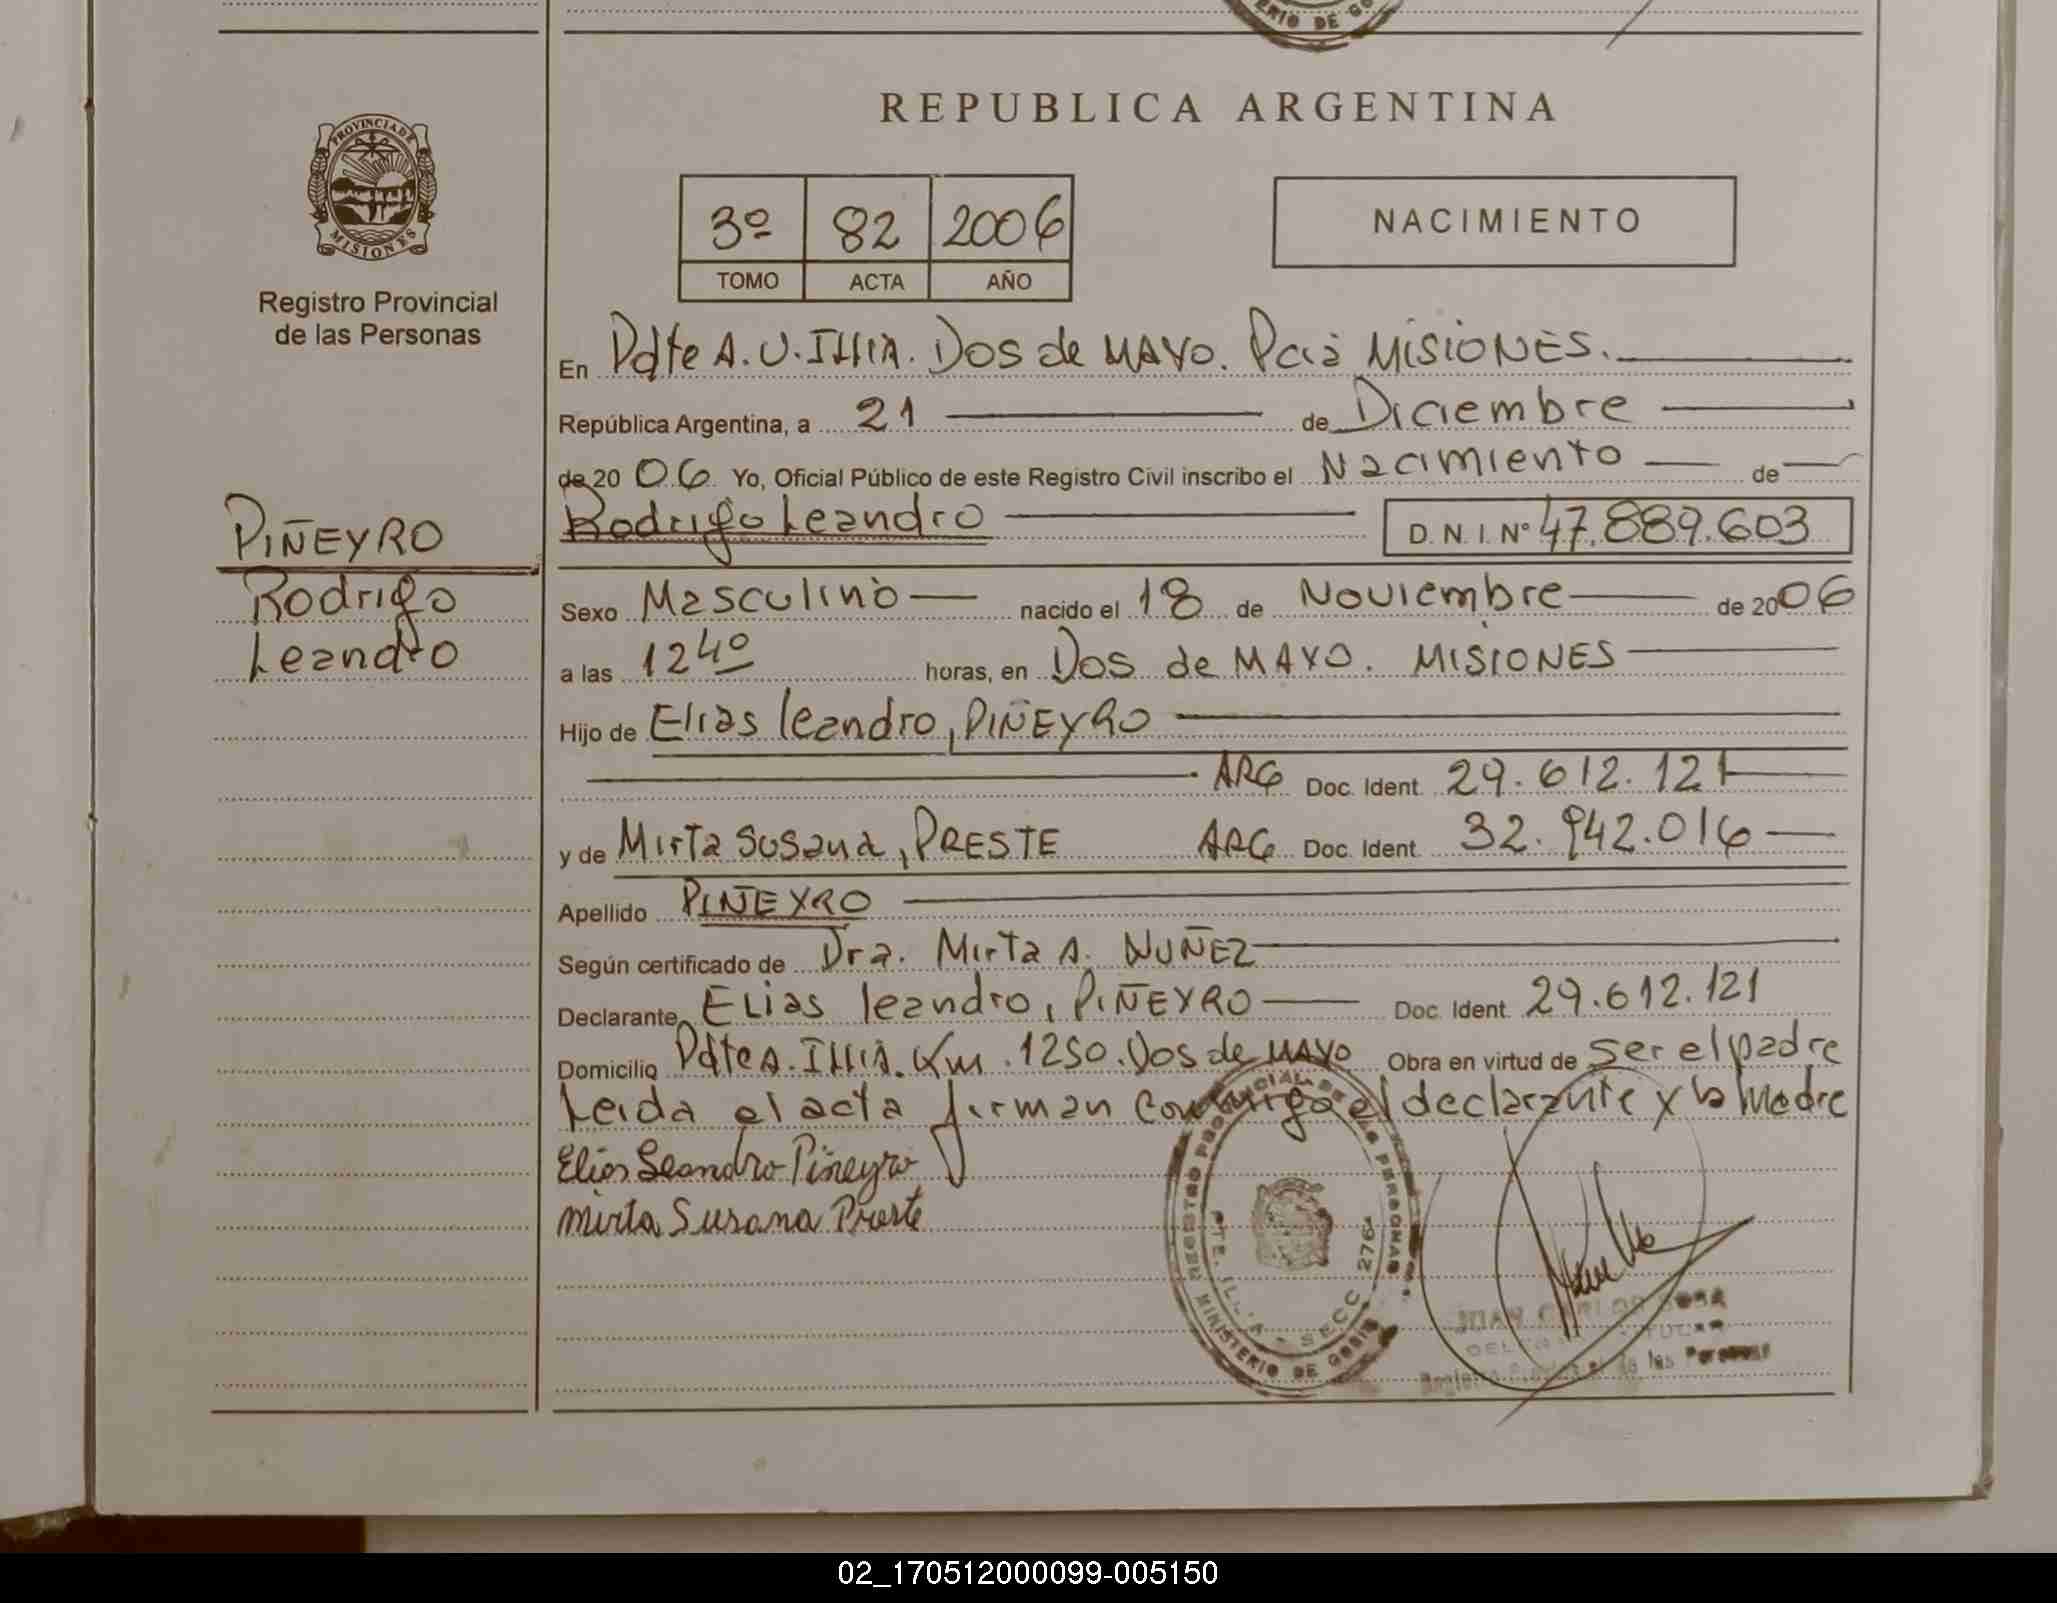 ERIO DE GO
REPUBLICA ARGENTINA
PROVINCIA DE
MISIONES
Registro Provincial
de las Personas
3º 82 2006
TOMO ACTA AÑO
NACIMIENTO
En Pdte A.U. Illia. Dos de MAYO. Pcia MISIONES.
República Argentina, a 21 de Diciembre
de 20 06 Yo, Oficial Público de este Registro Civil inscribo el Nacimiento de
Rodrigo Leandro D. N. I. Nº 47.889.603
PIÑEYRO
Rodrigo
Leandro
Sexo Masculino nacido el 18 de Noviembre de 2006
a las 12 40 horas, en Dos de MAYO. MISIONES
Hijo de Elias Leandro, PIÑEYRO
ARG Doc. Ident. 29.612.121
y de Mirta Susana, PRESTE ARG Doc. Ident. 32.942.016
Apellido PIÑEYRO
Según certificado de Dra. Mirta A. NUÑEZ
Declarante Elias Leandro, PIÑEYRO Doc. Ident. 29.612.121
Domicilio Pdte A. Illia. Km. 1250. Dos de MAYO Obra en virtud de ser el padre
Leida el acta firman conmigo el declarante y la Madre
Elias Leandro Piñeyro
Mirta Susana Preste
REGISTRO PROVINCIAL DE LAS PERSONAS
MINISTERIO DE GOBIE
SECC 2761
JUAN CARLOS SOSA
de las Personas
02_170512000099-005150